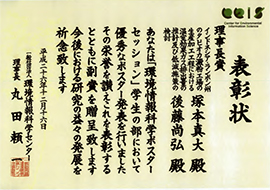 CEIS
Center for Environmental Information Science
表彰状
理事長賞
塚本真大殿
後藤尚弘殿
あなたは「環境情報科学ポスター
セッション」学生の部において
優秀なポスター発表を行いました
その栄誉を讃えこれを表彰する
とともに副賞を贈呈致します
今後における研究の益々の発展を
祈念致します
平成二十六年十二月十六日
一般社団法人環境情報科学センター
理事長 丸田頼一